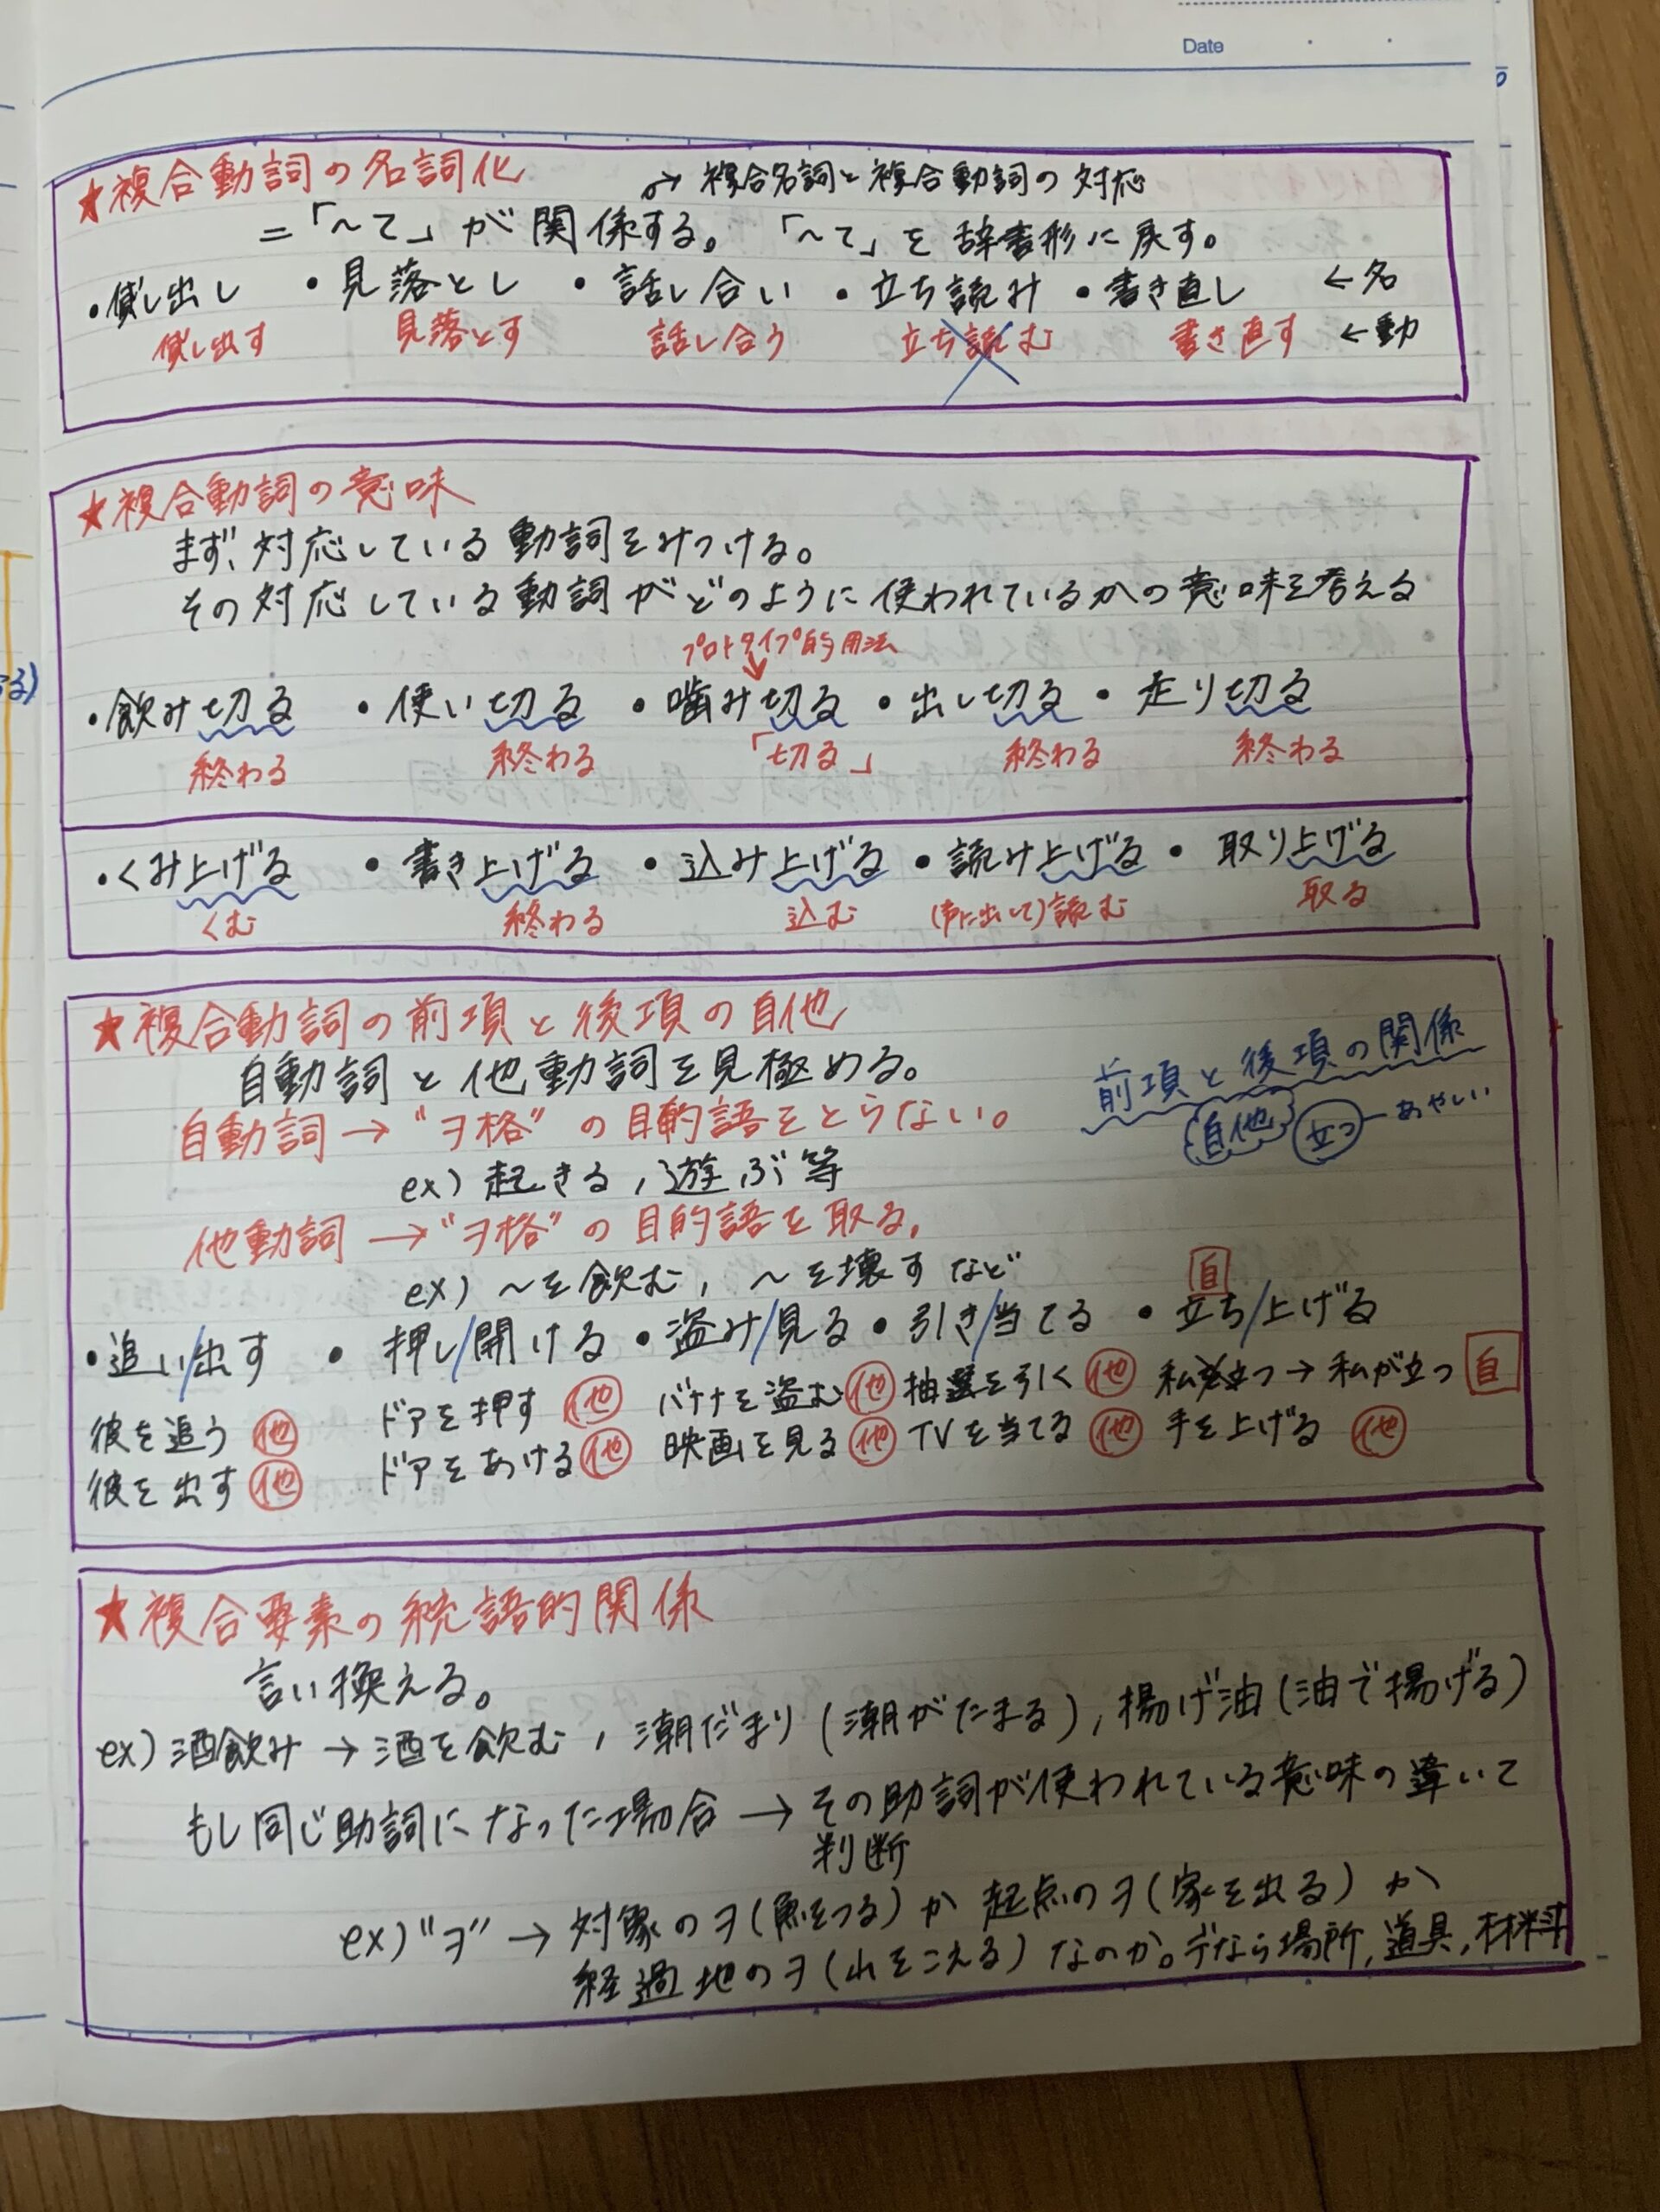 Date
★複合動詞の名詞化
→ 複合名詞と複合動詞の対応
=「~て」が関係する。「~て」を辞書形に戻す。
・貸し出し ・見落とし ・話し合い ・立ち読み ・書き直し ←名
貸し出す 見落とす 話し合う 立ち読む 書き直す ←動
★複合動詞の意味
まず、対応している動詞をみつける。
その対応している動詞がどのように使われているかの意味を考える
プロトタイプ的用法
・飲み切る ・使い切る ・噛み切る ・出し切る ・走り切る
終わる 終わる 「切る」 終わる 終わる
・くみ上げる ・書き上げる ・込み上げる ・読み上げる ・取り上げる
くむ 終わる 込む (声に出して)読む 取る
★複合動詞の前項と後項の自他
自動詞と他動詞を見極める。
前項と後項の関係
自動詞→"ヲ格"の目的語をとらない。
自他 立つ あやしい
ex) 起きる,遊ぶ等
他動詞→"ヲ格"の目的語を取る。
ex) ~を飲む, ~を壊すなど
自
・追い/出す ・押し/開ける ・盗み/見る ・引き/当てる ・立ち/上げる
彼を追う 他 ドアを押す 他 バナナを盗む 他 抽選を引く 他 私を立つ→私が立つ 自
彼を出す 他 ドアをあける 他 映画を見る 他 TVを当てる 他 手を上げる 他
★複合要素の統語的関係
言い換える。
ex)酒飲み→酒を飲む, 潮だまり(潮がたまる), 揚げ油(油で揚げる)
もし同じ助詞になった場合→その助詞が使われている意味の違いで
判断
ex)"ヲ"→対象のヲ(魚をつる)か起点のヲ(家を出る)か
経過地のヲ(山をこえる)なのか。デなら場所,道具,材料